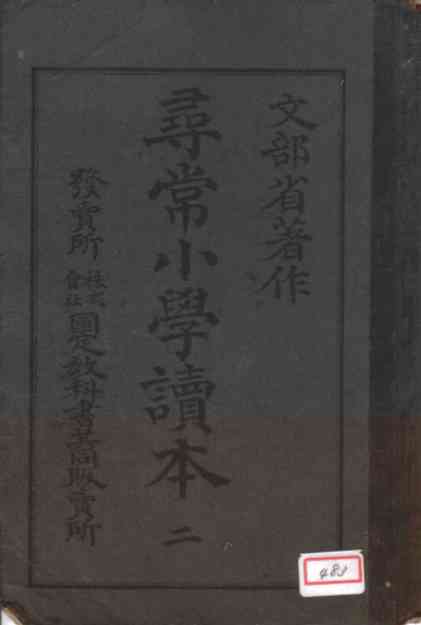 文部省著作
尋常小學讀本 二
發賣所 株式會社 國定教科書共同販賣所